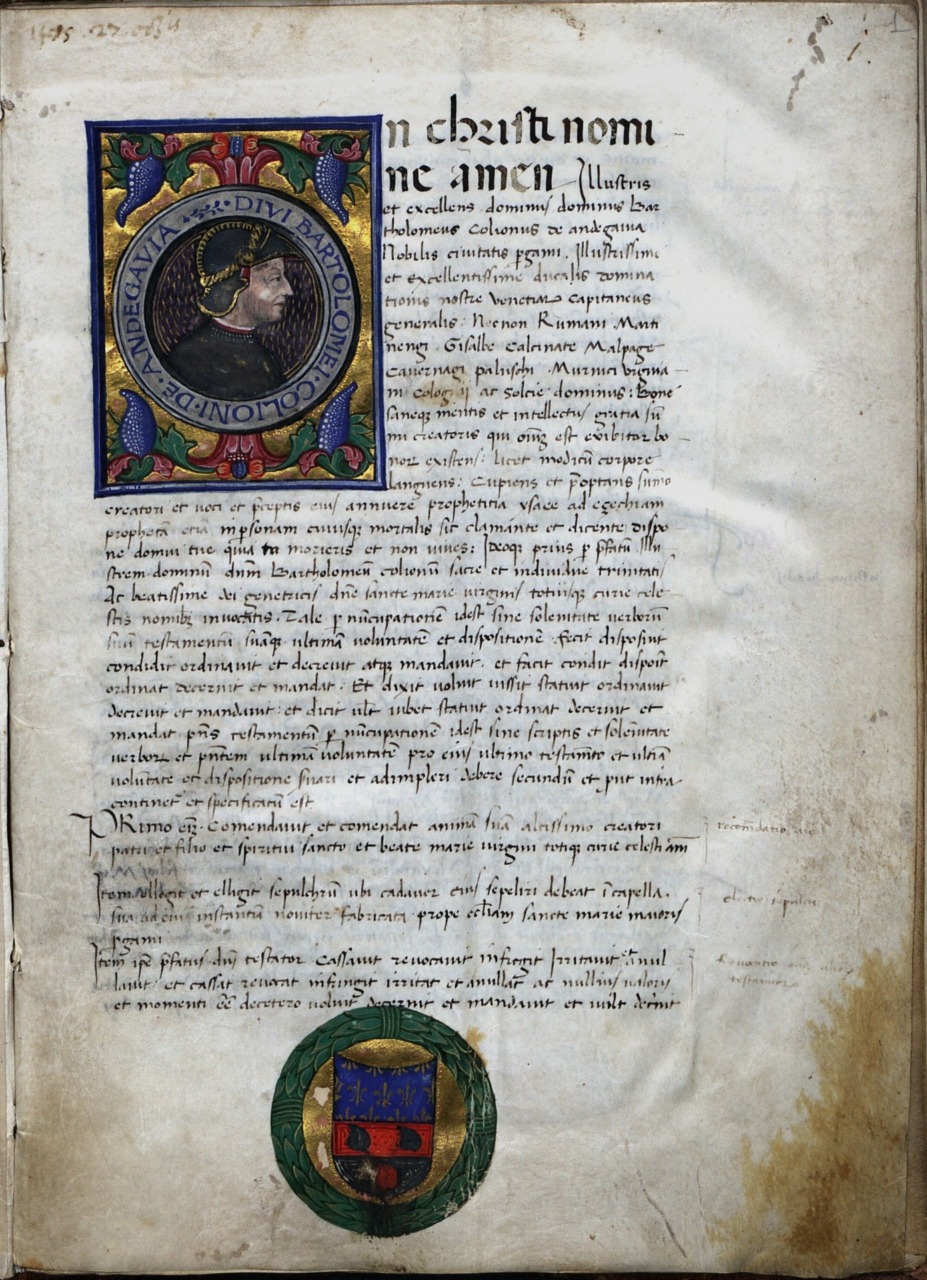 1475 27 octobris
1
DIVI BARTOLOMEI · COLIONI · DE · ANDEGAVIA
n christi nomi
ne amen Illustris
et excellens dominus dominus Bar
tholomeus Colionus de andegavia
Nobilis civitatis pgami. Illustrissimi
et excellentissime ducalis domina
tionis nostre venetiaꝝ Capitaneus
generalis. Necnon Rumani Marti
nengi. Gisalbe Calcinate Malpage
Cavernagi paluschi. Murnici Urgnia
ni Colog ij ac Solcie dominus: Bone
saneq mentis et intellectus gratia sũ
mi creatoris qui oĩuʒ est exibitor bo
noꝝ existens: licet modicũ corpore
languens: Cupiens et poptans sũmo
creatori et voci et pceptis eius annuere prophetica ysaee ad ezechiam
prophetã etiã in psonam cuiusq mortalis sic clamante et dicente dispo
ne domui tue quia tu morieris et non vives: Ideoq prius p pfatũ Illu
strem dominũ dnm Bartholomeũ colionũ sacre et individue trinitatis
Ac beatissime dei genetricis dñe sancte marie virginis totiusq curie cele
stis nomibʒ invocatis. Tale p nũcupationẽ idest sine solenitate verboꝝ
suũ testamentũ suamq ultimã voluntatẽ et dispositionẽ fecit disposuit
condidit ordinavit et decrevit atq mandavit. et facit condit disponit
ordinat decernit et mandat. Et dixit voluit iussit statuit ordinavit
decrevit et mandavit: et dicit vlt iubet statuit ordinat decernit et
mandat pñs testamentũ p nũcupationẽ idest sine scriptis et solenitate
verboꝝ et pñtem ultimã voluntatẽ pro eius ultimo testamẽto et ultiã
volũtate et dispositione svari et adimpleri debere secundũ et put infra
continet et specificatũ est
PRimo eñ. Comendavit et comendat animã suã altissimo creatori
patri et filio et spiritui sancto et beate marie virgini totiq curie celesti
Item ellegit et elligit sepulchrũ ubi cadaver eius sepeliri debeat ĩ capella.
sua ad eius instantiã noviter fabricata prope ecl̃iam sancte marie maioris
pgami
Item ipe pfatus dñs testator Cassavit revocavit infregit Irritavit et anul
lavit: et cassat revocat infringit irritat et anullat ac nullius valoris
et momenti eẽ decetero voluit decrevit et mandavit et vult decernit
recomẽdatio
electio sepulcri
Revocatio
testamentoꝝ